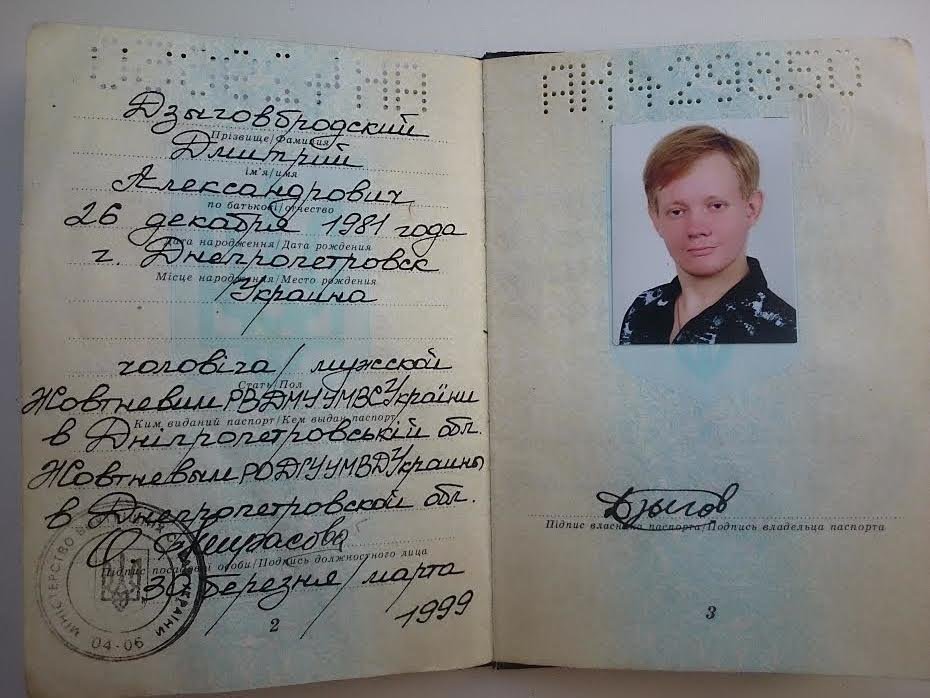 АН429650
Дзыговбродский
Прізвище/Фамилия
Дмитрий
ім'я/имя
Александрович
по батькові/отчество
26 декабря 1981 года
Дата народження/Дата рождения
г. Днепропетровск
Місце народження/Место рождения
Украина
чоловіча/мужской
Стать/Пол
Жовтневим РВДМУУМВСУкраїни
Ким виданий паспорт/Кем выдан паспорт
в Дніпропетровській обл.
Жовтневым РОДГУУМВДУкраины
в Днепропетровской обл.
Підпис посадової особи/Подпись должностного лица
30 березня/марта
1999
МІНІСТЕРСТВО УКРАЇНИ
04-06
2
АН429650
Дзыгов
Підпис власника паспорта/Подпись владельца паспорта
3